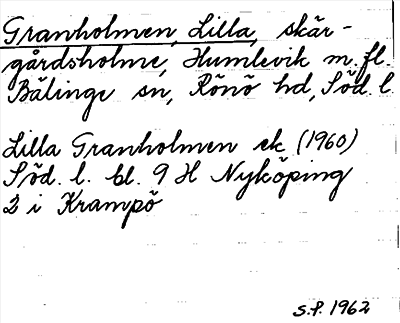 Granholmen, Lilla, skär-
gårdsholme, Humlevik m. fl.
Bälinge sn, Rönö hd, Söd. l.
Lilla Granholmen ek (1960)
Söd. l. bl. 9 H Nyköping
2 i Krampö
S.P. 1962